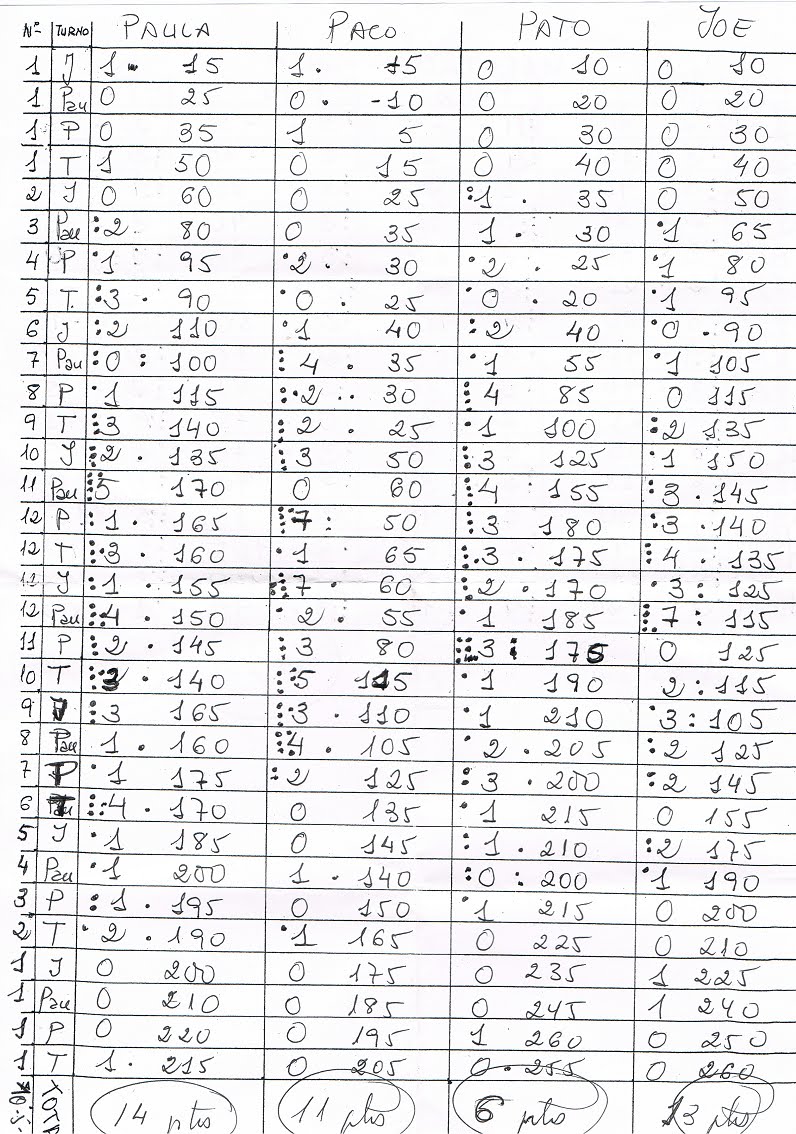 Nº TURNO PAULA PACO PATO JOE
1 J 1 · 15 1 · 15 0 10 0 10
1 Pau 0 25 0 · -10 0 20 0 20
1 P 0 35 1 5 0 30 0 30
1 T 1 50 0 15 0 40 0 40
2 J 0 60 0 25 :1 · 35 0 50
3 Pau :2 80 0 35 1 · 30 ·1 65
4 P ·1 95 ·2 · 30 ·2 · 25 ·1 80
5 T. :3 · 90 ·0 · 25 ·0 · 20 ·1 95
6 J :2 110 ·1 40 :2 40 ·0 · 90
7 Pau :0 : 100 :4 · 35 ·1 55 ·1 105
8 P ·1 115 :·2 ·· 30 :4 85 0 115
9 T :3 140 :2 · 25 ·1 100 :2 135
10 J :2 · 135 :3 50 :3 125 ·1 150
11 Pau :5 170 0 60 :4 155 :3 · 145
12 P :1 · 165 :7 : 50 :3 180 :3 · 140
12 T :3 · 160 ·1 65 :3 · 175 :4 · 135
12 J :1 · 155 :7 · 60 :2 · 170 ·3 : 125
12 Pau :4 · 150 ·2 · 55 ·1 185 :7 : 115
11 P :2 · 145 :3 80 :3 : 175 0 125
10 T :3 · 140 :5 115 ·1 190 2 : 115
9 J :3 165 :3 · 110 ·1 210 ·3 : 105
8 Pau 1 · 160 :4 · 105 ·2 · 205 :2 125
7 P ·1 175 :2 125 :3 · 200 :2 145
6 T :4 · 170 0 135 ·1 215 0 155
5 J ·1 185 0 145 :1 · 210 :2 175
4 Pau ·1 200 1 · 140 :0 : 200 ·1 190
3 P :1 · 195 0 150 ·1 215 0 200
2 T ·2 · 190 ·1 165 0 225 0 210
1 J 0 200 0 175 0 235 1 225
1 Pau 0 210 0 185 0 245 1 240
1 P 0 220 0 195 1 260 0 250
1 T 1 · 215 0 205 0 · 255 0 260
14 pts 11 pts 6 pts 13 pts